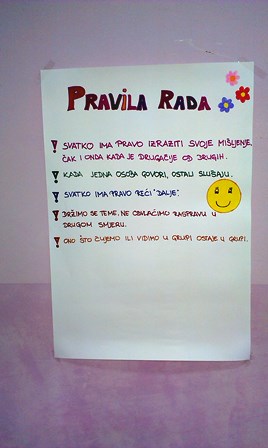 PRAVILA RADA
! SVATKO IMA PRAVO IZRAZITI SVOJE MIŠLJENJE,
ČAK I ONDA KADA JE DRUGAČIJE OD DRUGIH.
! KADA JEDNA OSOBA GOVORI, OSTALI SLUŠAJU.
! SVATKO IMA PRAVO REĆI "DALJE".
! DRŽIMO SE TEME. NE ODVLAČIMO RASPRAVU U
DRUGOM SMJERU.
! ONO ŠTO ČUJEMO ILI VIDIMO U GRUPI OSTAJE U GRUPI.